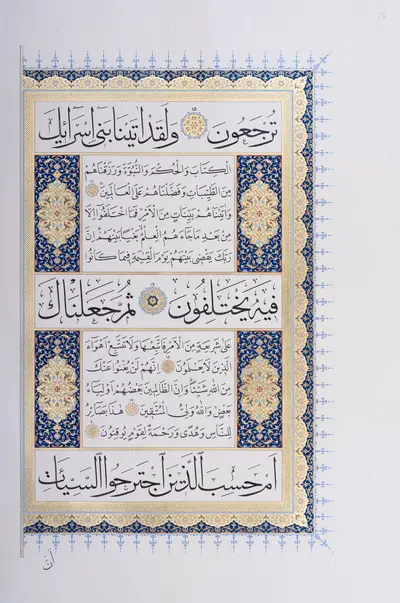 تُرْجَعُونَ وَلَقَدْ اٰتَيْنَا بَنِى اِسْرَائِيلَ
الْكِتَابَ وَالْحُكْمَ وَالنُّبُوَّةَ وَرَزَقْنَاهُمْ
مِنَ الطَّيِّبَاتِ وَفَضَّلْنَاهُمْ عَلَى الْعَالَمِينَ
وَاٰتَيْنَاهُمْ بَيِّنَاتٍ مِنَ الْاَمْرِ فَمَا اخْتَلَفُوا اِلَّا
مِنْ بَعْدِ مَا جَاءَهُمُ الْعِلْمُ بَغْيًا بَيْنَهُمْ اِنَّ
رَبَّكَ يَقْضِى بَيْنَهُمْ يَوْمَ الْقِيٰمَةِ فِيمَا كَانُوا
فِيهِ يَخْتَلِفُونَ ثُمَّ جَعَلْنَاكَ
عَلٰى شَرِيعَةٍ مِنَ الْاَمْرِ فَاتَّبِعْهَا وَلَا تَتَّبِعْ اَهْوَاءَ
الَّذِينَ لَا يَعْلَمُونَ اِنَّهُمْ لَنْ يُغْنُوا عَنْكَ
مِنَ اللّٰهِ شَيْئًا وَاِنَّ الظَّالِمِينَ بَعْضُهُمْ اَوْلِيَاءُ
بَعْضٍ وَاللّٰهُ وَلِىُّ الْمُتَّقِينَ هٰذَا بَصَائِرُ
لِلنَّاسِ وَهُدًى وَرَحْمَةٌ لِقَوْمٍ يُوقِنُونَ
اَمْ حَسِبَ الَّذِينَ اجْتَرَحُوا السَّيِّئَاتِ
اَنْ